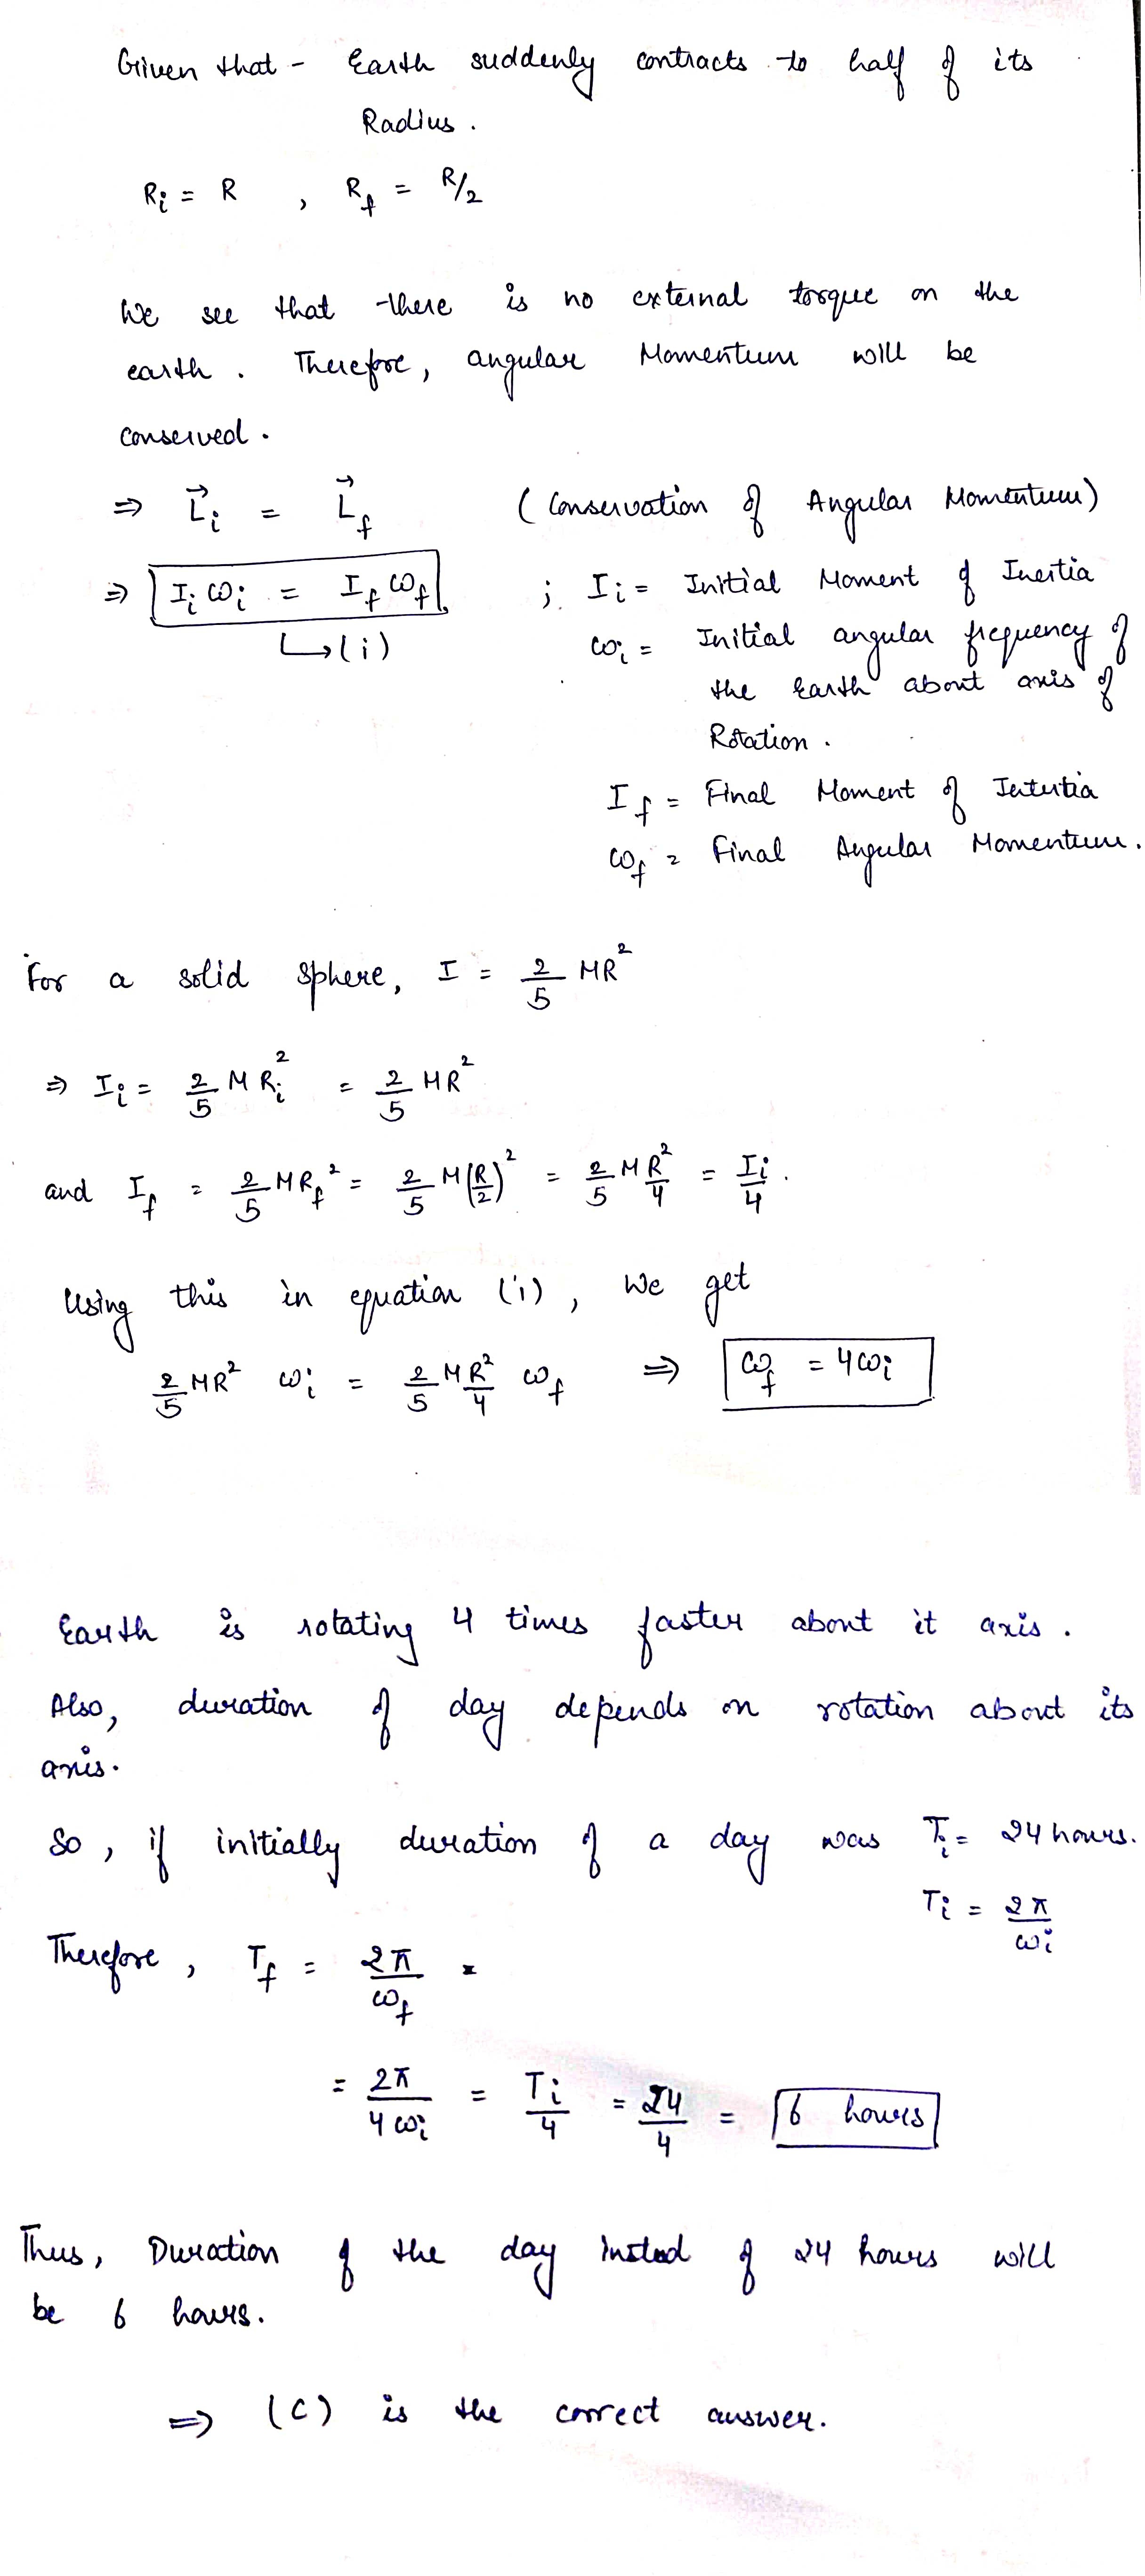 Given that - Earth suddenly contracts to half of its
Radius.
Ri = R , Rf = R/2
We see that there is no external torque on the
earth. Therefore, angular Momentum will be
conserved.
⇒ L⃗i = L⃗f (Conservation of Angular Momentum)
⇒ Ii ωi = If ωf ; Ii = Initial Moment of Inertia
↳(i) ωi = Initial angular frequency of
the Earth about axis of
Rotation.
If = Final Moment of Intertia
ωf = Final Angular Momentum.
For a solid sphere, I = 2/5 MR²
⇒ Ii = 2/5 MRi² = 2/5 MR²
and If = 2/5 MRf² = 2/5 M(R/2)² = 2/5 M R²/4 = Ii/4.
Using this in equation (i), We get
2/5 MR² ωi = 2/5 M R²/4 ωf ⇒ ωf = 4ωi
Earth is rotating 4 times faster about it axis.
Also, duration of day depends on rotation about its
axis.
So, if initially duration of a day was Ti = 24 hours.
Ti = 2π/ωi
Therefore, Tf = 2π/ωf =
= 2π/4ωi = Ti/4 = 24/4 = 6 hours
Thus, Duration of the day insted of 24 hours will
be 6 hours.
⇒ (C) is the correct answer.